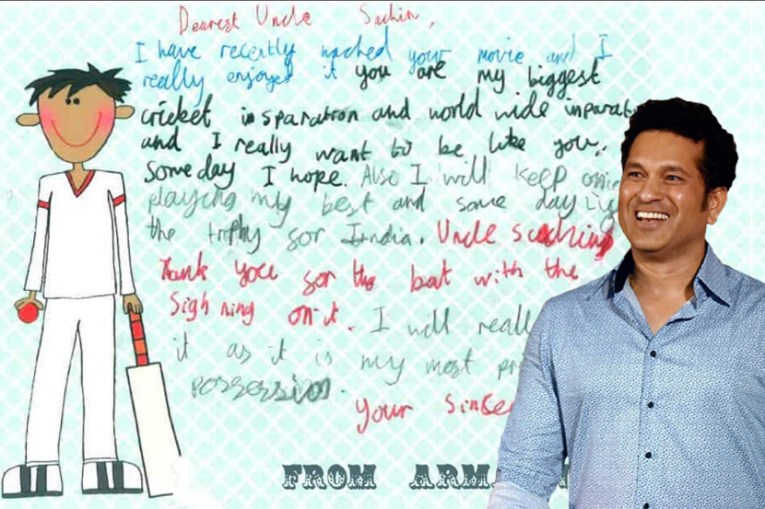 Dearest Uncle Sachin,
I have recently wached your movie and I
really enjoyed it you are my biggest
cricket insparatron and world wide
and I really want to be like you.
Some day I hope. Also I will keep on
playing my best and some day
the trophy for India. Uncle
Thank you for the bat with the
Sighning on it. I will
it as it is my most
possession.
your
FROM